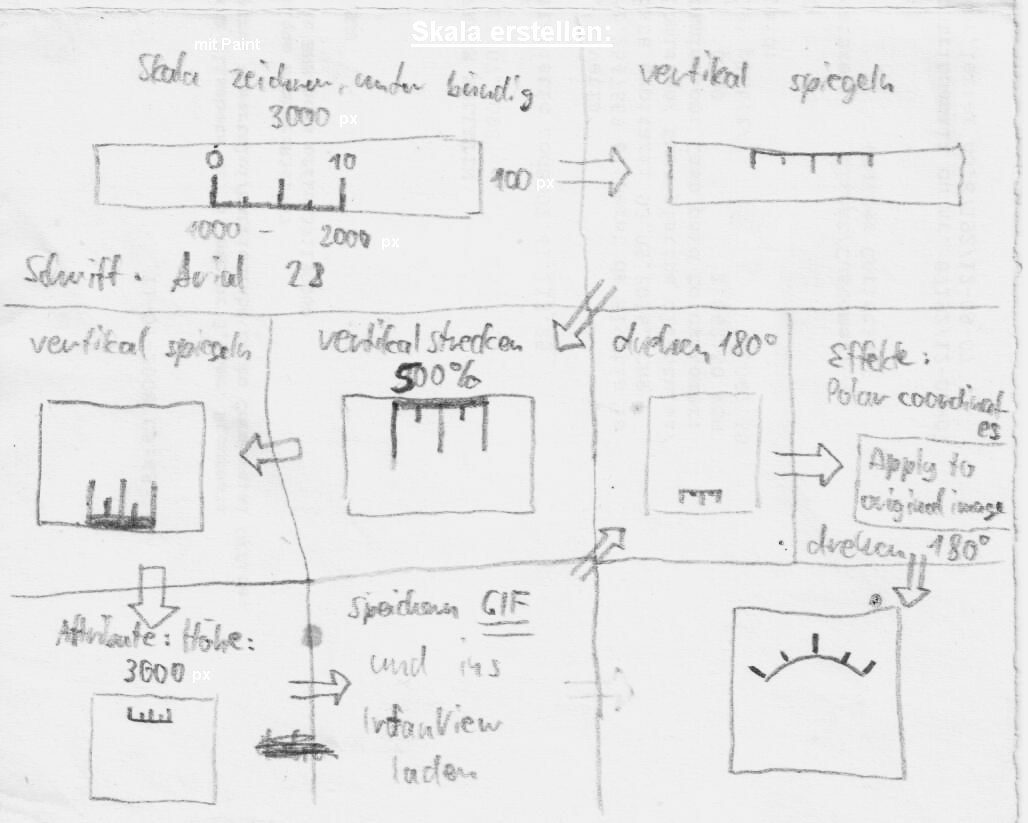 Skala erstellen:
mit Paint
Skala zeichnen, unten bündig
3000 px
0 10
100 px
1000 - 2000 px
Schrift. Arial 28
vertikal spiegeln
vertikal strecken
500%
vertikal spiegeln
Attribute: Höhe:
3000 px
speichern GIF
und ins
IrfanView
laden
drehen 180°
Effekte:
Polar coordinat
es
Apply to
original image
drehen 180°